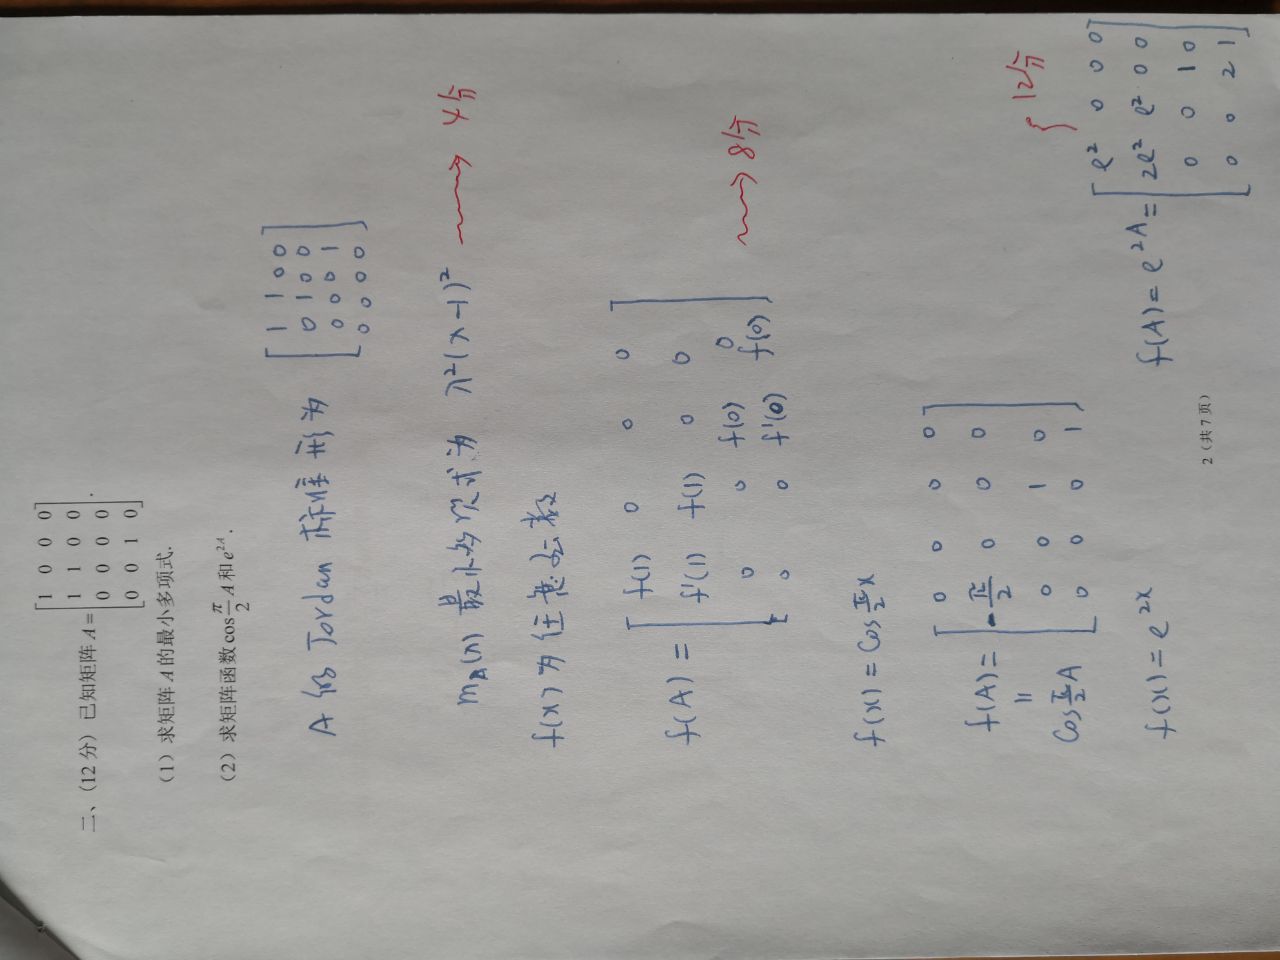 二、(12 分) 已知矩阵 A = [1 0 0 0; 1 1 0 0; 0 0 0 0; 0 0 1 0].
(1) 求矩阵 A 的最小多项式.
(2) 求矩阵函数 cos π/2 A 和 e^{2A}.
A 的 Jordan 标准形为 [1 1 0 0; 0 1 0 0; 0 0 0 1; 0 0 0 0]
m_A(λ) 最小多项式为 λ²(λ-1)² → 4分
f(x) 为任意函数
f(A) = [f(1) 0 0 0; f'(1) f(1) 0 0; 0 0 f(0) 0; 0 0 f'(0) f(0)] → 8分
f(x) = Cos π/2 x
f(A) = [0 0 0 0; -π/2 0 0 0; 0 0 1 0; 0 0 0 1]
=
Cos π/2 A
12分
f(x) = e^{2x}
f(A) = e^{2A} = [e² 0 0 0; 2e² e² 0 0; 0 0 1 0; 0 0 2 1]
2（共 7 页）